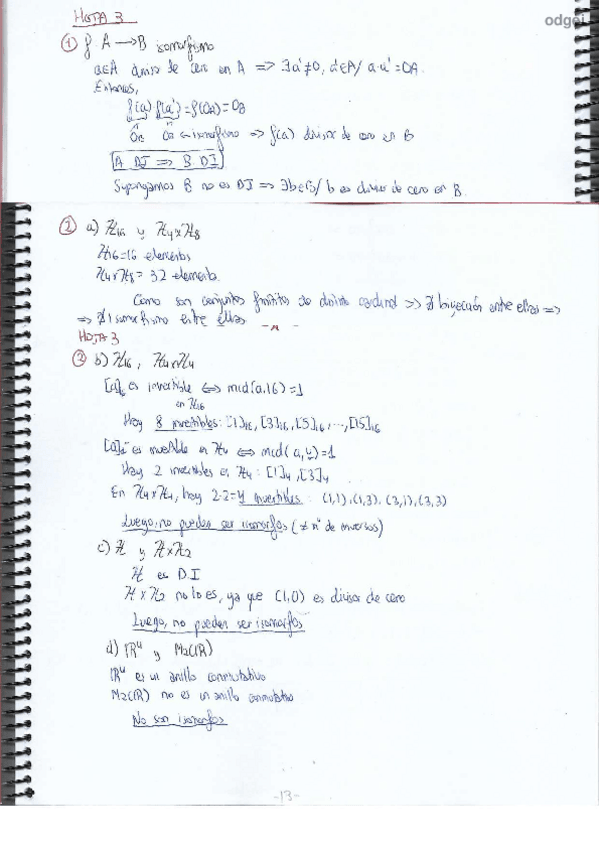 HOJA 3
odgei
① f: A → B isomorfismo
a∈A divisor de cero en A => ∃a'≠0, a'∈A / a·a' = 0A.
Entonces,
f(a) f(a') = f(0A) = 0B
isomorfismo => f(a) divisor de cero en B
A DI => B DI
Supongamos B no es DI => ∃b∈B / b es divisor de cero en B.
② a) ℤ16 y ℤ4×ℤ8
ℤ16 = 16 elementos
ℤ4×ℤ8 = 32 elementos.
Como son conjuntos finitos de distinto cardinal => ∄ biyección entre ellos =>
=> ∄ isomorfismo entre ellos
HOJA 3
② b) ℤ16, ℤ4×ℤ4
[a] es invertible <=> mcd(a,16)=1
en ℤ16
Hay 8 invertibles: [1]16, [3]16, [5]16, ..., [15]16
[a] es invertible en ℤ4 <=> mcd(a,4)=1
Hay 2 invertibles en ℤ4: [1]4, [3]4
En ℤ4×ℤ4, hay 2·2=4 invertibles: (1,1), (1,3), (3,1), (3,3)
Luego, no pueden ser isomorfos (≠ nº de inversos)
c) ℤ y ℤ×ℤ2
ℤ es D.I
ℤ×ℤ2 no lo es, ya que (1,0) es divisor de cero
Luego, no pueden ser isomorfos
d) ℝ⁴ y M2(ℝ)
ℝ⁴ es un anillo conmutativo
M2(ℝ) no es un anillo conmutativo
No son isomorfos
-13-